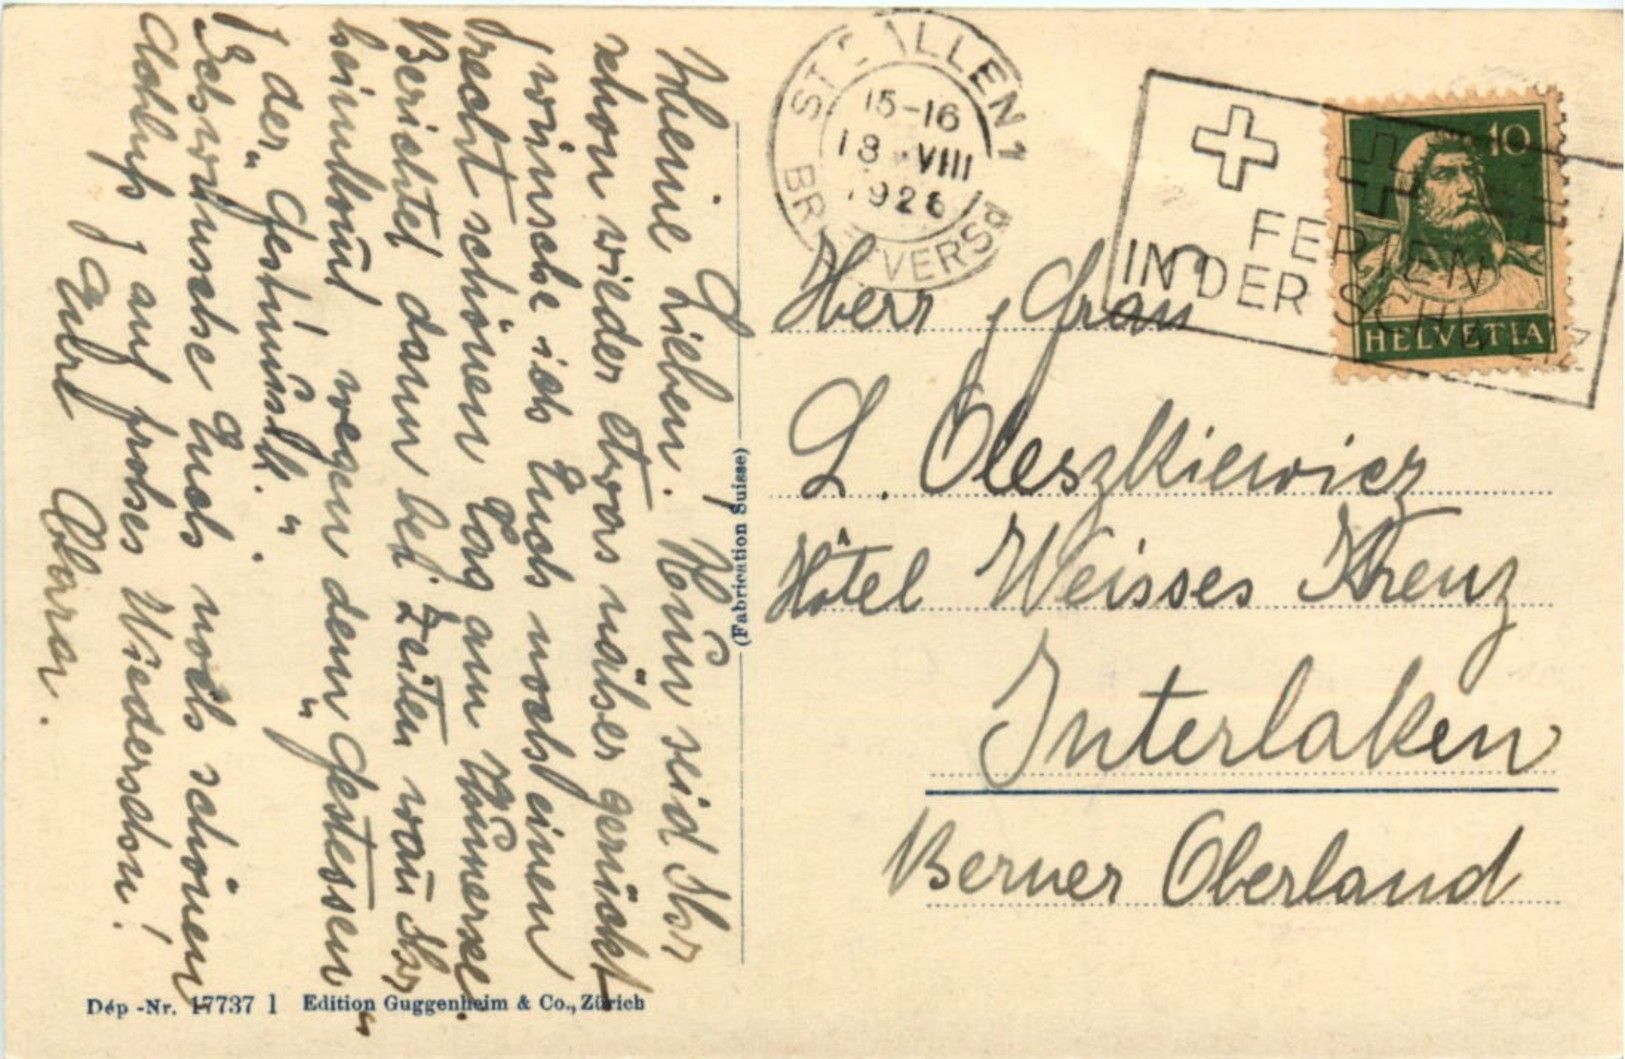 Meine Lieben. Nun seid Ihr
schon wieder etwas näher gerückt
wünsche ich Euch noch einen
recht schönen Tag am
Berichtet dann bei Zeiten wann Ihr
heimkommt wegen dem "Gestessen"
der "Festmusik".
wünsche Euch noch schönen
Schluss auf frohes Wiedersehn!
Eure Clara.
(Fabrication Suisse)
ST. GALLEN 1
15-16
18. VIII
1926
BRIEFVERSD
FERIEN
IN DER SCHWEIZ
10
HELVETIA
Herr & Frau
L. Oleszkiewicz
Hôtel Weisses Kreuz
Interlaken
Berner Oberland
Dép-Nr. 17737 1 Edition Guggenheim & Co., Zürich